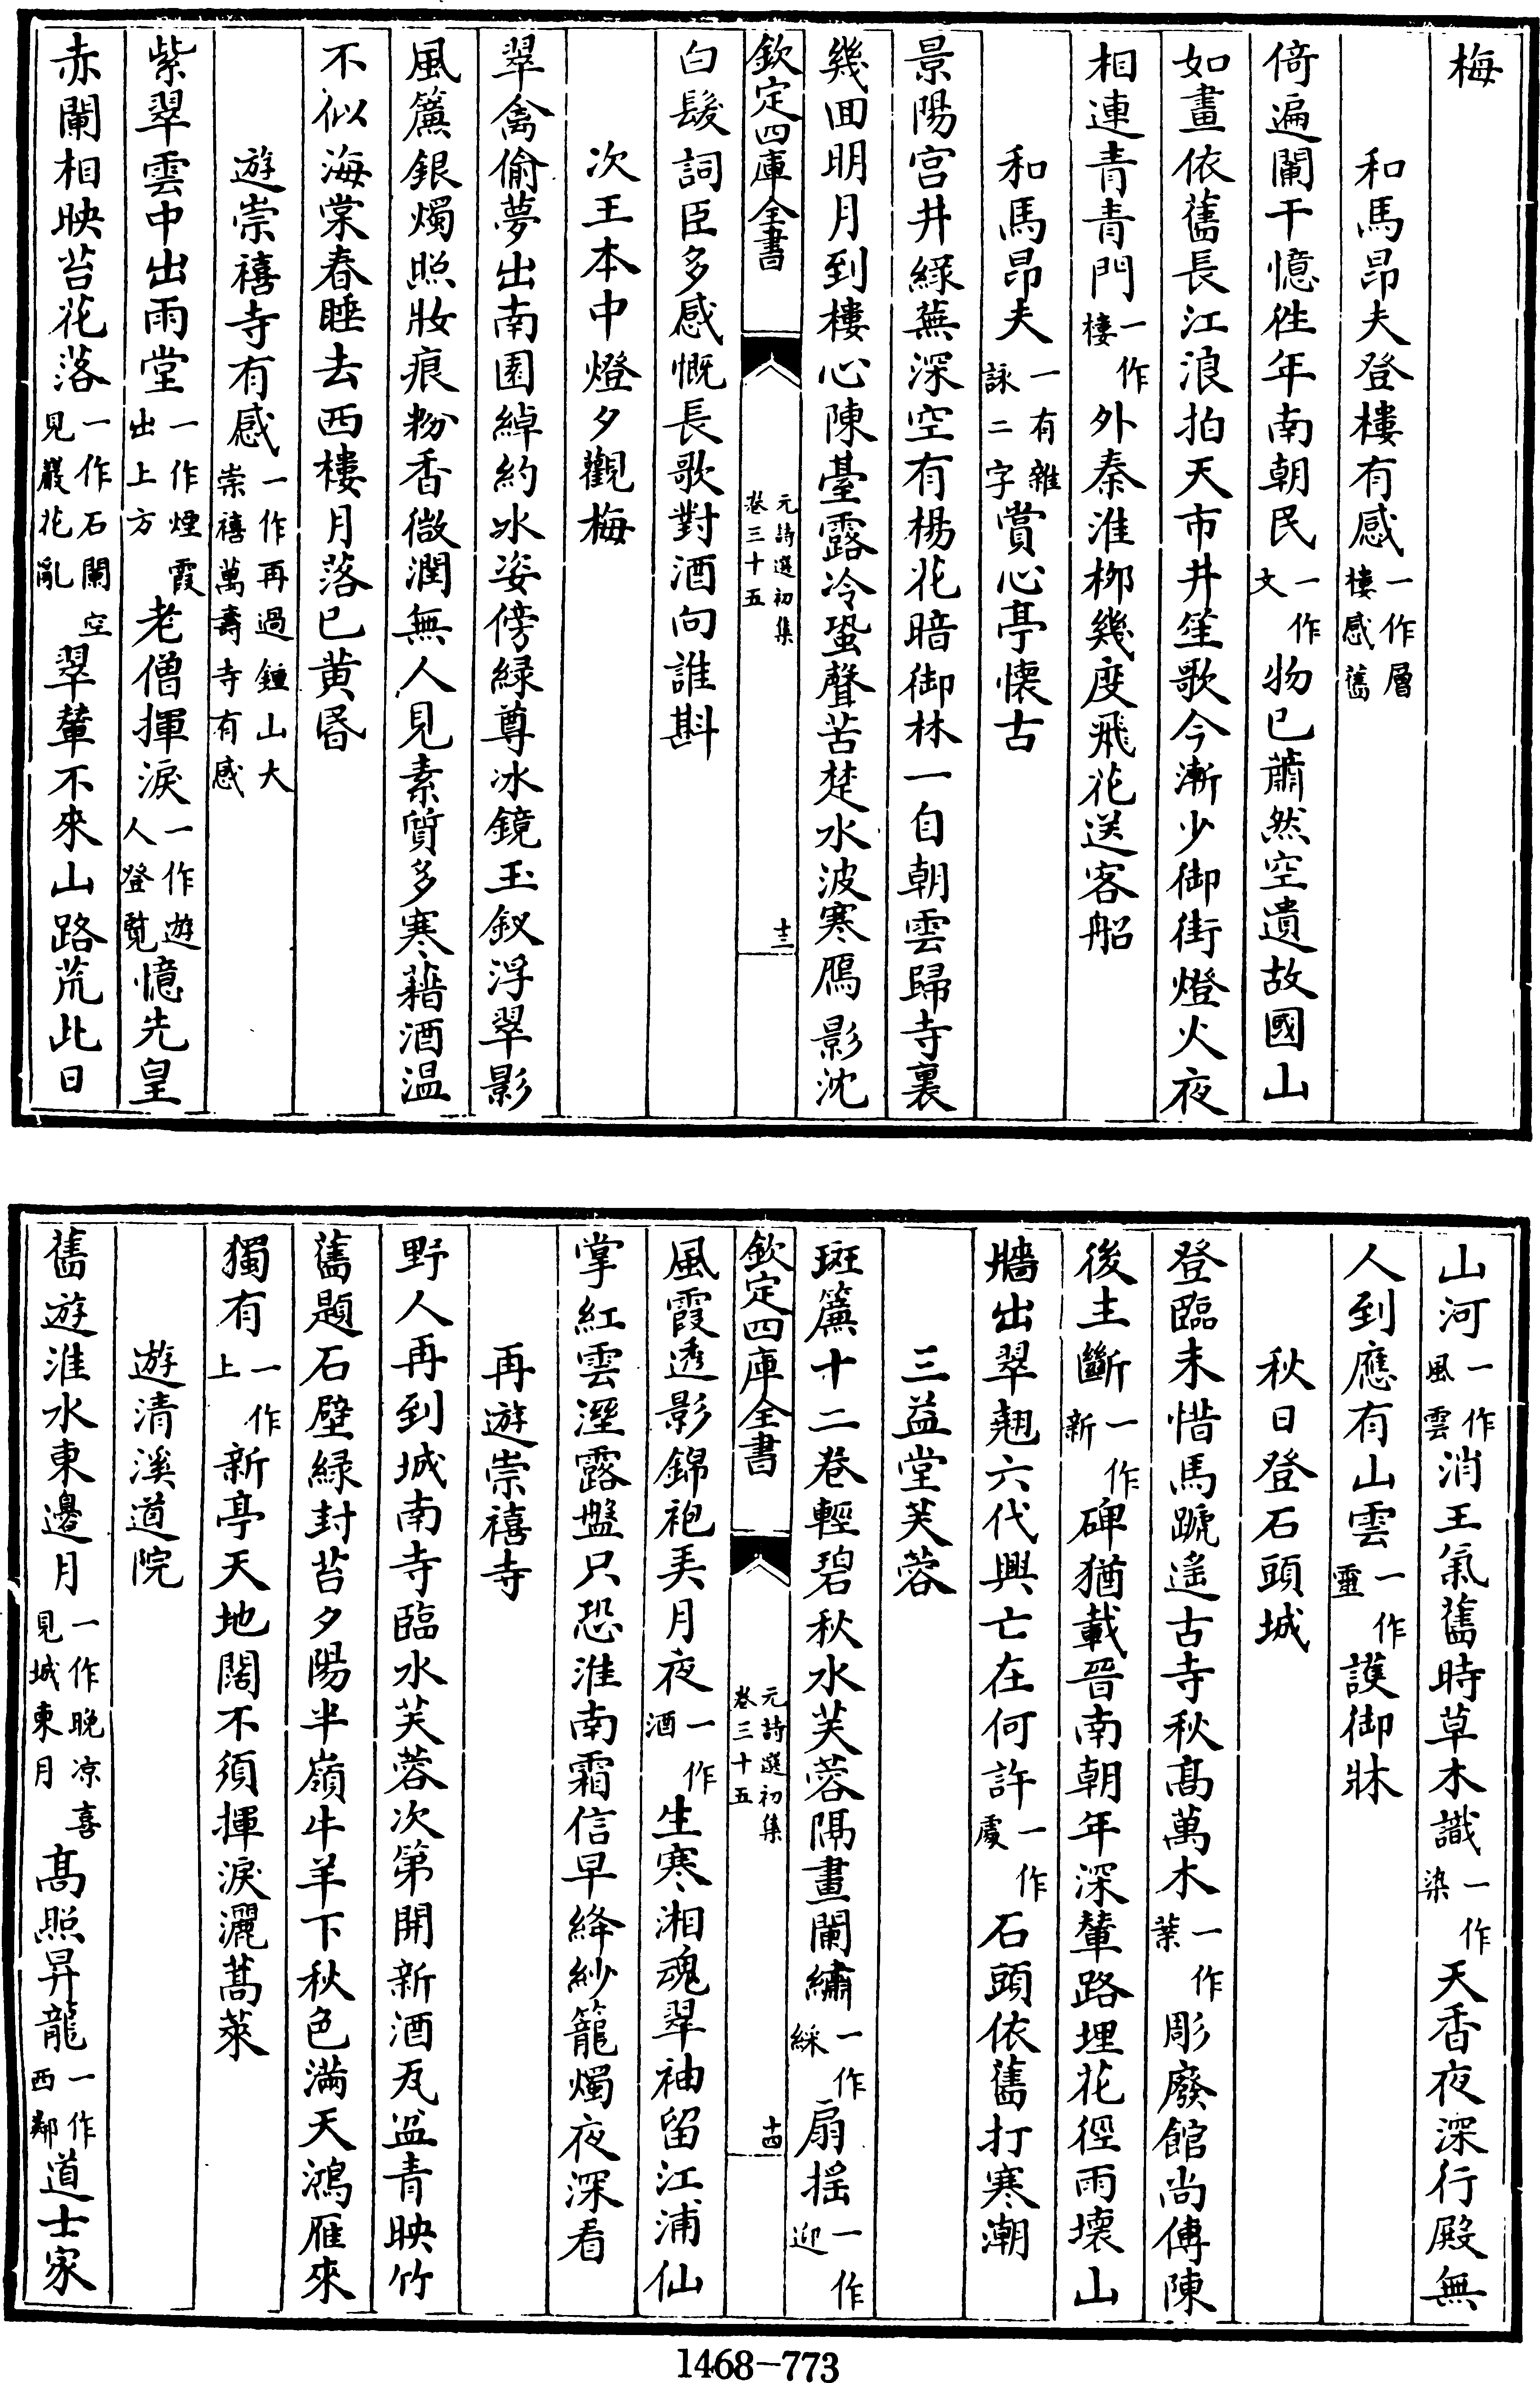 梅
和馬昂夫登樓有感一作層樓感舊
倚遍闌干憶徃年南朝民一作文物已蕭然空遺故國山
如畫依舊長江浪拍天市井笙歌今漸少御街燈火夜
相連青青門一作樓外秦淮栁幾度飛花送客船
和馬昂夫一有雜詠二字賞心亭懷古
景陽宫井緑蕪深空有楊花暗御林一自朝雲歸寺裏
幾回明月到樓心陳臺露冷蛩聲苦楚水波寒鴈影沈
欽定四庫全書
元詩選初集
卷三十五
十三
白髮詞臣多感慨長歌對酒向誰斟
次王本中燈夕觀梅
翠禽偷夢出南園綽約冰姿傍緑尊冰鏡玉釵浮翠影
風簾銀燭照妝痕粉香微潤無人見素質多寒藉酒温
不似海棠春睡去西樓月落已黄昏
遊崇禧寺有感一作再過鍾山大崇禧萬壽寺有感
紫翠雲中出雨堂一作煙霞出上方老僧揮淚一作遊人登覽憶先皇
赤闌相映苔花落一作石闌空見巖花亂翠輦不來山路荒此日
山河一作風雲消王氣舊時草木識一作染天香夜深行殿無
人到應有山雲一作靈護御牀
秋日登石頭城
登臨未惜馬蹏遙古寺秋髙萬木一作葉彫廢館尚傳陳
後主斷一作新碑猶載晉南朝年深輦路埋花徑雨壞山
牆出翠翹六代興亡在何許一作處石頭依舊打寒潮
三益堂芙蓉
斑簾十二卷輕碧秋水芙蓉隔畫闌繡一作綵扇揺一作迎
欽定四庫全書
元詩選初集
卷三十五
十四
風霞透影錦袍弄月夜一作酒生寒湘魂翠袖留江浦仙
掌紅雲溼露盤只恐淮南霜信早絳紗籠燭夜深看
再遊崇禧寺
野人再到城南寺臨水芙蓉次第開新酒瓦盆青映竹
舊題石壁緑封苔夕陽半嶺牛羊下秋色滿天鴻雁來
獨有一作上新亭天地闊不須揮淚灑蒿萊
遊清溪道院
舊遊淮水東邊月一作晚凉喜見城東月髙照昇龍一作西鄰道士家
1468-773